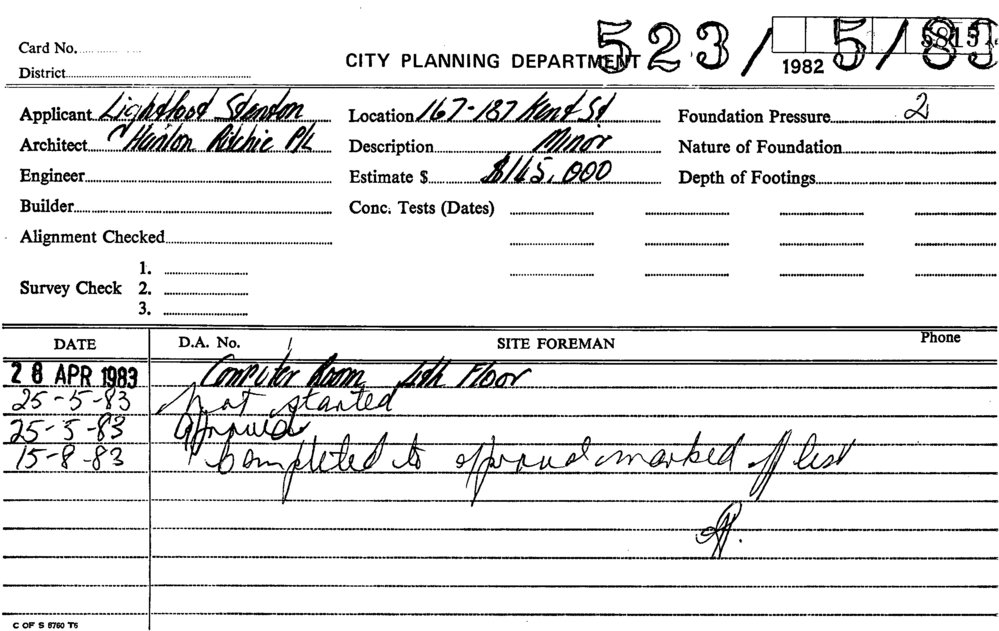 Card No.
523/ 5/83
CITY PLANNING DEPARTMENT
1982
District
Applicant Lightfoot Stenton Location 167-187 Kent St Foundation Pressure 2
Architect Hanlon Ritchie P/L Description Minor Nature of Foundation
Engineer Estimate $ $165,000 Depth of Footings
Builder Conc. Tests (Dates)
Alignment Checked
1.
Survey Check 2.
3.
DATE D.A. No. SITE FOREMAN Phone
28 APR 1983 Computer Room 4th Floor
25-5-83 Not started
25-5-83
15-8-83 Completed to approval marked off list
C OF S 8760 T6